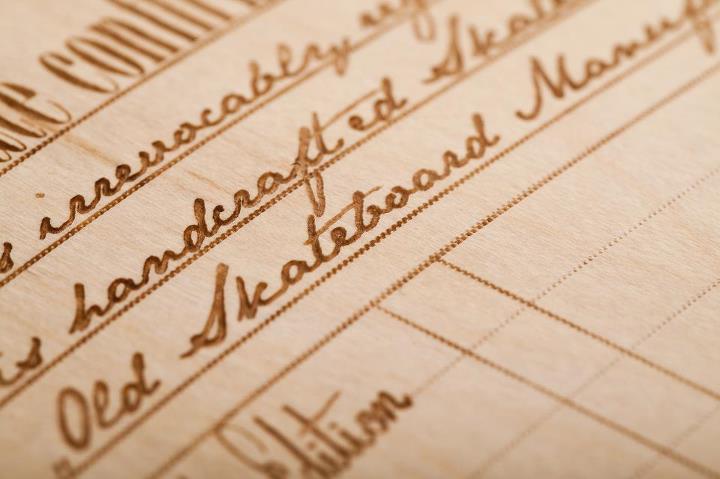 irrevocably
is handcrafted Skate
Old Skateboard Manuf
Edition